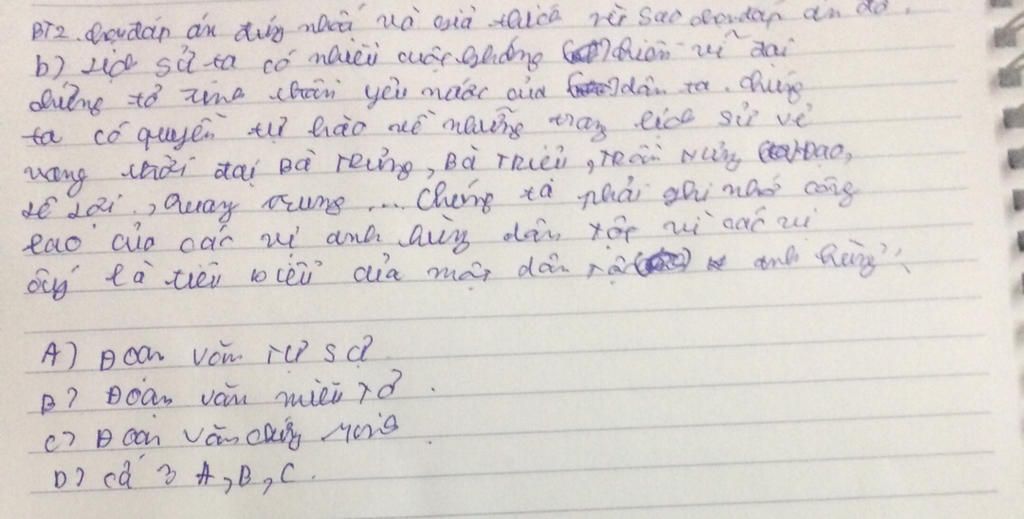 BT2. chọn đáp án đúng nhất và giải thích vì sao chọn đáp án đó.
b) Lịch sử ta có nhiều cuộc kháng chiến vĩ đại
chứng tỏ tinh thần yêu nước của dân ta. Chúng
ta có quyền tự hào về những trang lịch sử vẻ
vang thời đại Bà Trưng, Bà Triệu, Trần Hưng Đạo,
Lê Lợi, Quang Trung ... Chúng ta phải ghi nhớ công
lao của các vị anh hùng dân tộc vì các vị
ấy là tiêu biểu của một dân tộc anh hùng"
A) Đoạn văn tự sự
B) Đoạn văn miêu tả.
C) Đoạn văn chứng minh
D) cả 3 A, B, C.